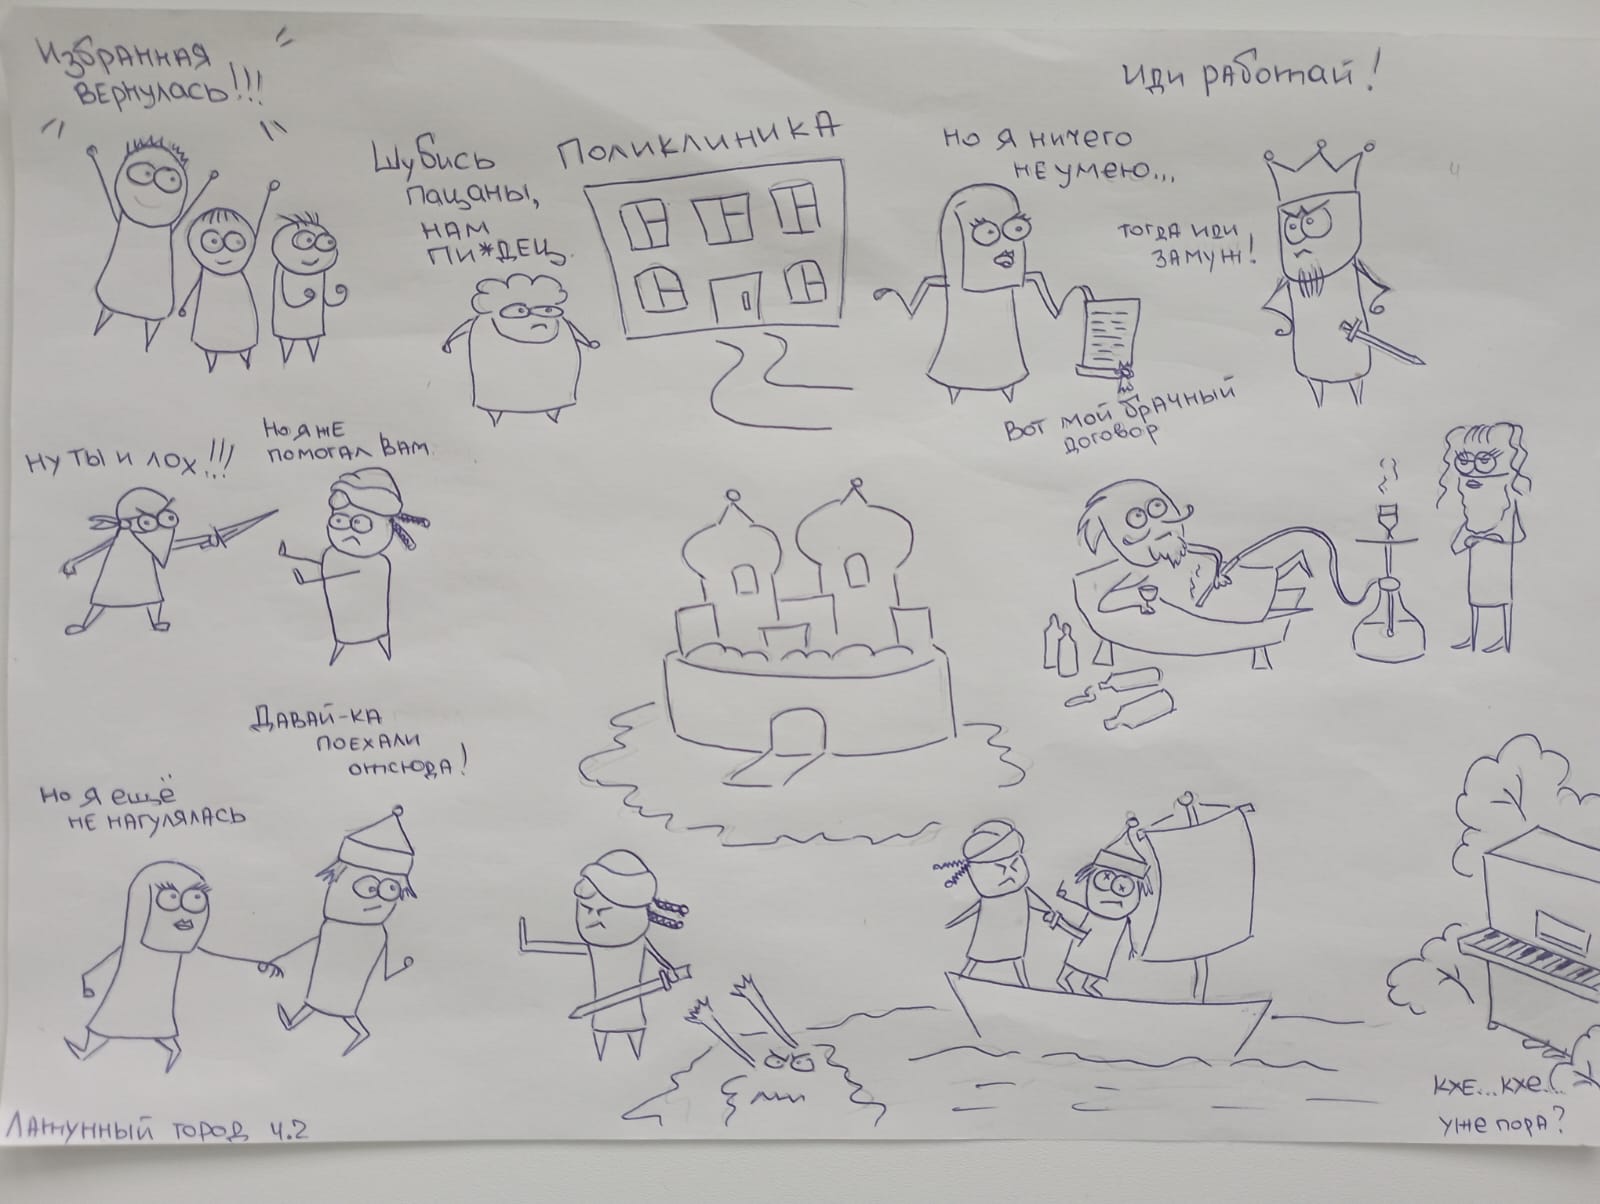 Избранная
вернулась!!!
Шубись
пацаны,
нам
пи*дец.
Поликлиника
Но я ничего
не умею...
Иди работай!
Тогда иди
замуж!
Вот мой брачный
договор
Ну ты и лох!!!
Но я же
помогал вам.
Давай-ка
поехали
отсюда!
Но я ещё
не нагулялась
кхе...кхе...
уже пора?
Латунный город ч.2